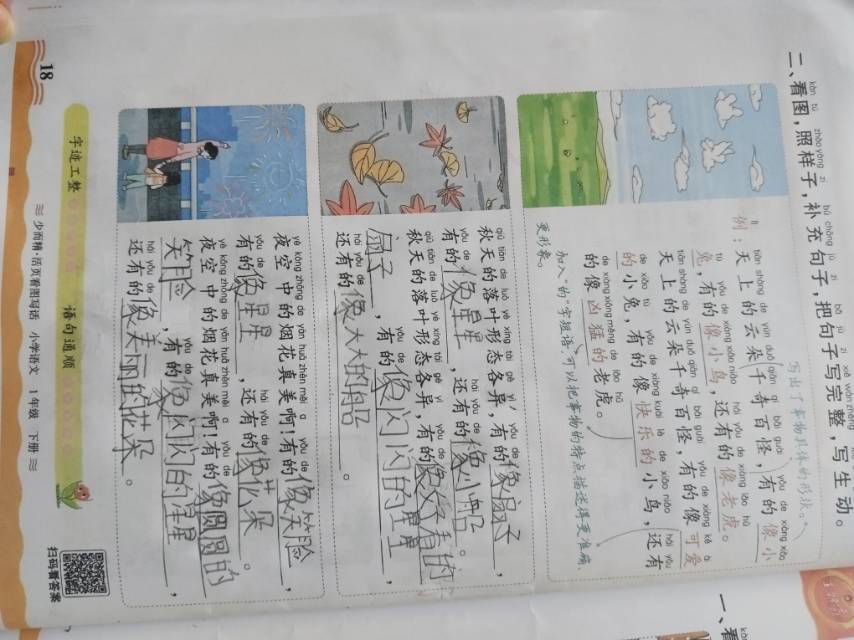 二、看图,照样子,补充句子,把句子写完整,写生动。
写出了事物具体的形状。
例:天上的云朵千奇百怪,有的像小
兔,有的像小鸟,还有的像老虎。
天上的云朵千奇百怪,有的像可爱
的小兔,有的像快乐的小鸟,还有
的像凶猛的老虎。
加入“的”字短语,可以把事物的特点描述得更准确,
更形象。
秋天的落叶形态各异,有的像扇子,
有的像星星,还有的像小船。
秋天的落叶形态各异,有的像好看的
扇子,有的像闪闪的星星,
还有的像大大的船。
夜空中的烟花真美啊!有的像笑脸,
有的像星星,还有的像花朵。
夜空中的烟花真美啊!有的像圆圆的
笑脸,有的像闪闪的星星,
还有的像美丽的花朵。
字迹工整
语句通顺
18
少而精·活页看图写话 小学语文 1年级 下册
扫码看答案
一、看